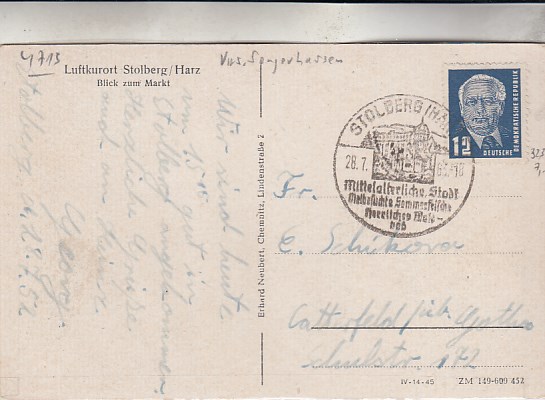 4713
Krs. Sangerhausen
Luftkurort Stolberg/Harz
Blick zum Markt
Wir sind heute
um 15 gut in
Stolberg angekommen
Herzliche Grüße
Stolberg, d. 28.7.52
Georg
Erhard Neubert, Chemnitz, Lindenstraße 2
STOLBERG (HARZ)
28.7.
Mittelalterliche Stadt
Vielbesuchte Sommerfrische
Herrliches Wald-
bad
12
DEUTSCHE
DEMOKRATISCHE REPUBLIK
323
7,-
Fr.
C. Schikora
Catterfeld üb. Gotha
Schulstr 172
IV-14-45
ZM 149-609 452